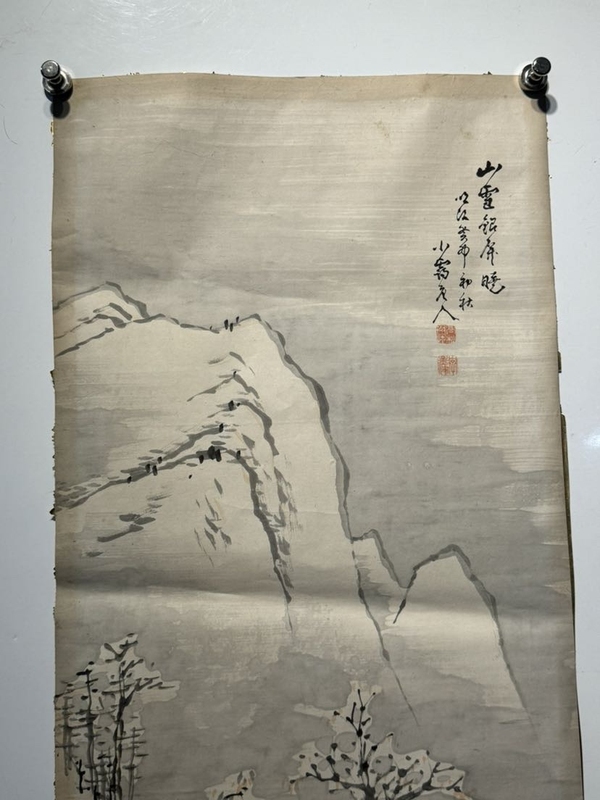 山雪銀屏曉
明治癸卯初秋
小霞老人